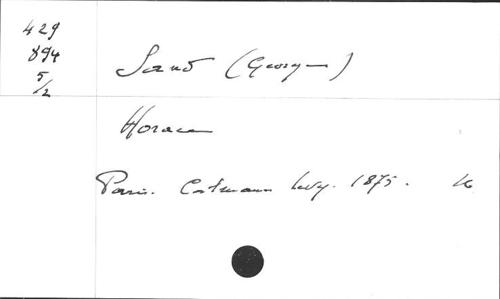 429
894
5
/2
Sand (George)
Horace
Paris. Calmann Levy. 1875. 16